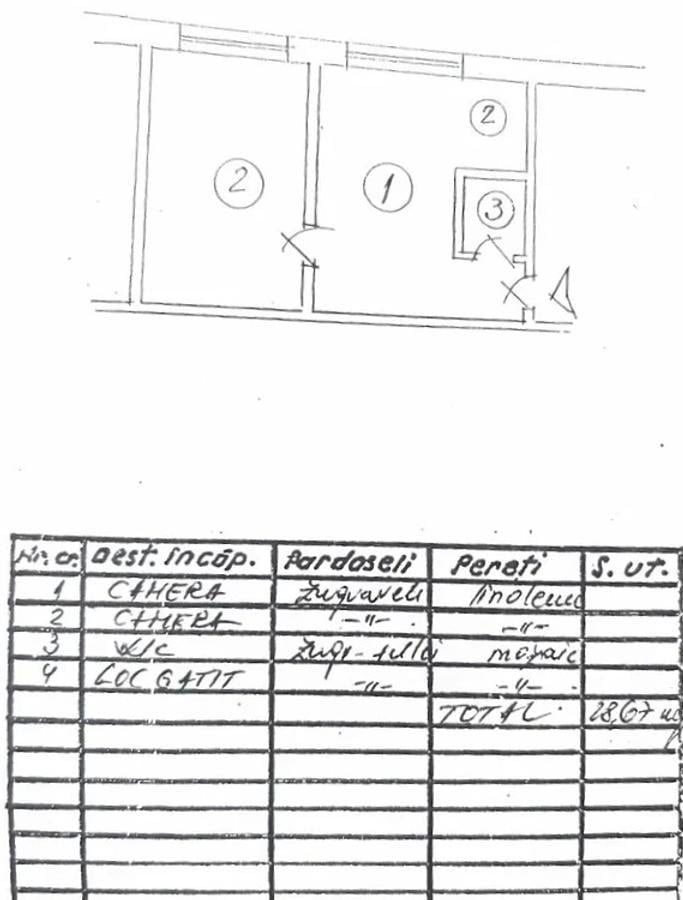 2
2
1
3
Nr. cr. Dest. încăp. Pardoseli Pereți S. ut.
1 CAMERA zugraveli linoleu
2 CAMERA -"- -"-
3 W/C zugr- mozaic
4 LOC GATIT -"- -"-
TOTAL 28,67